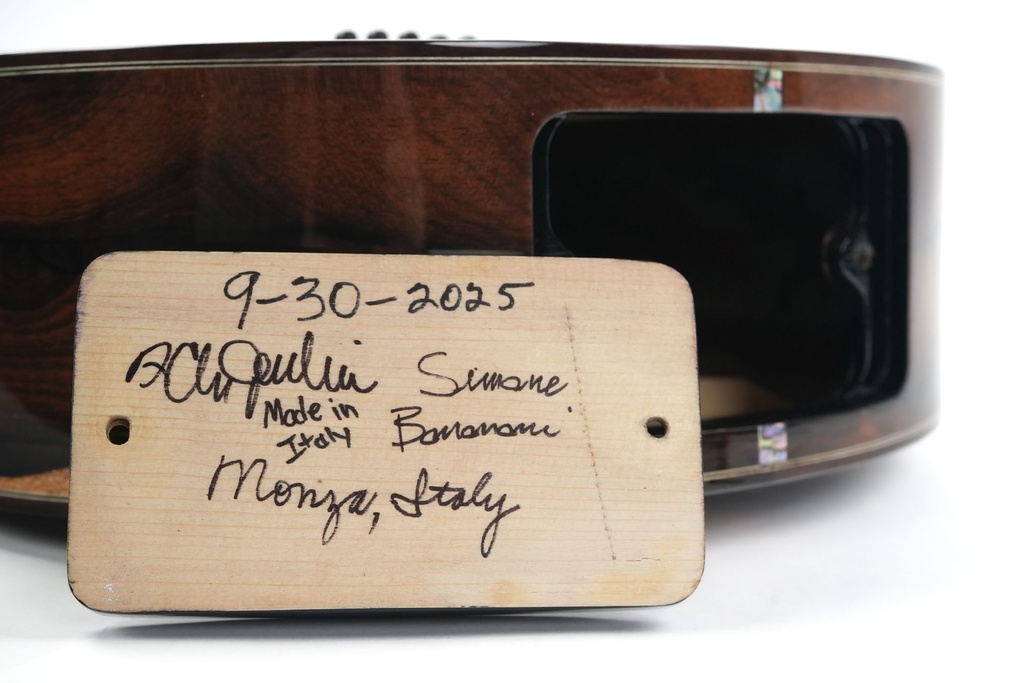 9-30-2025
Simone
Made in
Italy
Monza, Italy